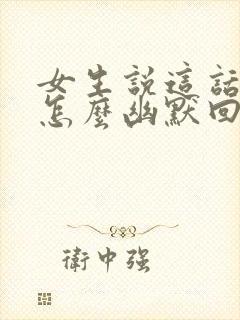 女生説這話
怎麼幽默回
衛中強